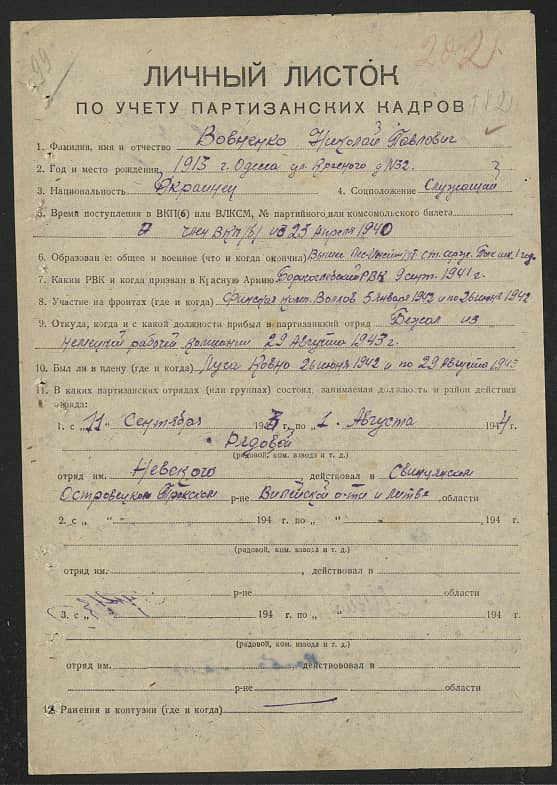 202
ЛИЧНЫЙ ЛИСТОК
ПО УЧЕТУ ПАРТИЗАНСКИХ КАДРОВ
1. Фамилия, имя и отчество Вовненко Николай Павлович
2. Год и место рождения 1913 г. Одесса ул. Красного д N32.
3. Национальность Украинец 4. Соцположение Служащий
3. Время поступления в ВКП(б) или ВЛКСМ, № партийного или комсомольского билета
член ВКП(б) из 25 Апреля 1940
6. Образование: общее и военное (что и когда окончил) Высшее
7. Каким РВК и когда призван в Красную Армию РВК 9 сент. 1941 г.
8. Участие на фронтах (где и когда) Финская Волхов 5 января 1942 и по 26 июня 1942
9. Откуда, когда и с какой должности прибыл в партизанский отряд Бежал из
немецкой рабочей компании 29 Августа 1943 г.
10. Был ли в плену (где и когда) Луга Ковно 26 июня 1942 и по 29 Августа 1943
11. В каких партизанских отрядах (или группах) состоял, занимаемая должность и район действия
отряда:
1. с „11" Сентября 1943 г. по „1" Августа 1944 г.
Рядовой
(рядовой, ком. взвода и т. д.)
отряд им. Невского действовал в Свирилянском
Островецком Трокском р-не Вилейской о-ти и Литве области
2. с „ " 194 г. по „ " 194 г.
(рядовой, ком. взвода и т. д.)
отряд им. действовал в
р-не области
3. с „ " 194 г. по „ " 194 г.
(рядовой, ком. взвода и т. д.)
отряд им. действовал в
р-не области
12. Ранения и контузии (где и когда)